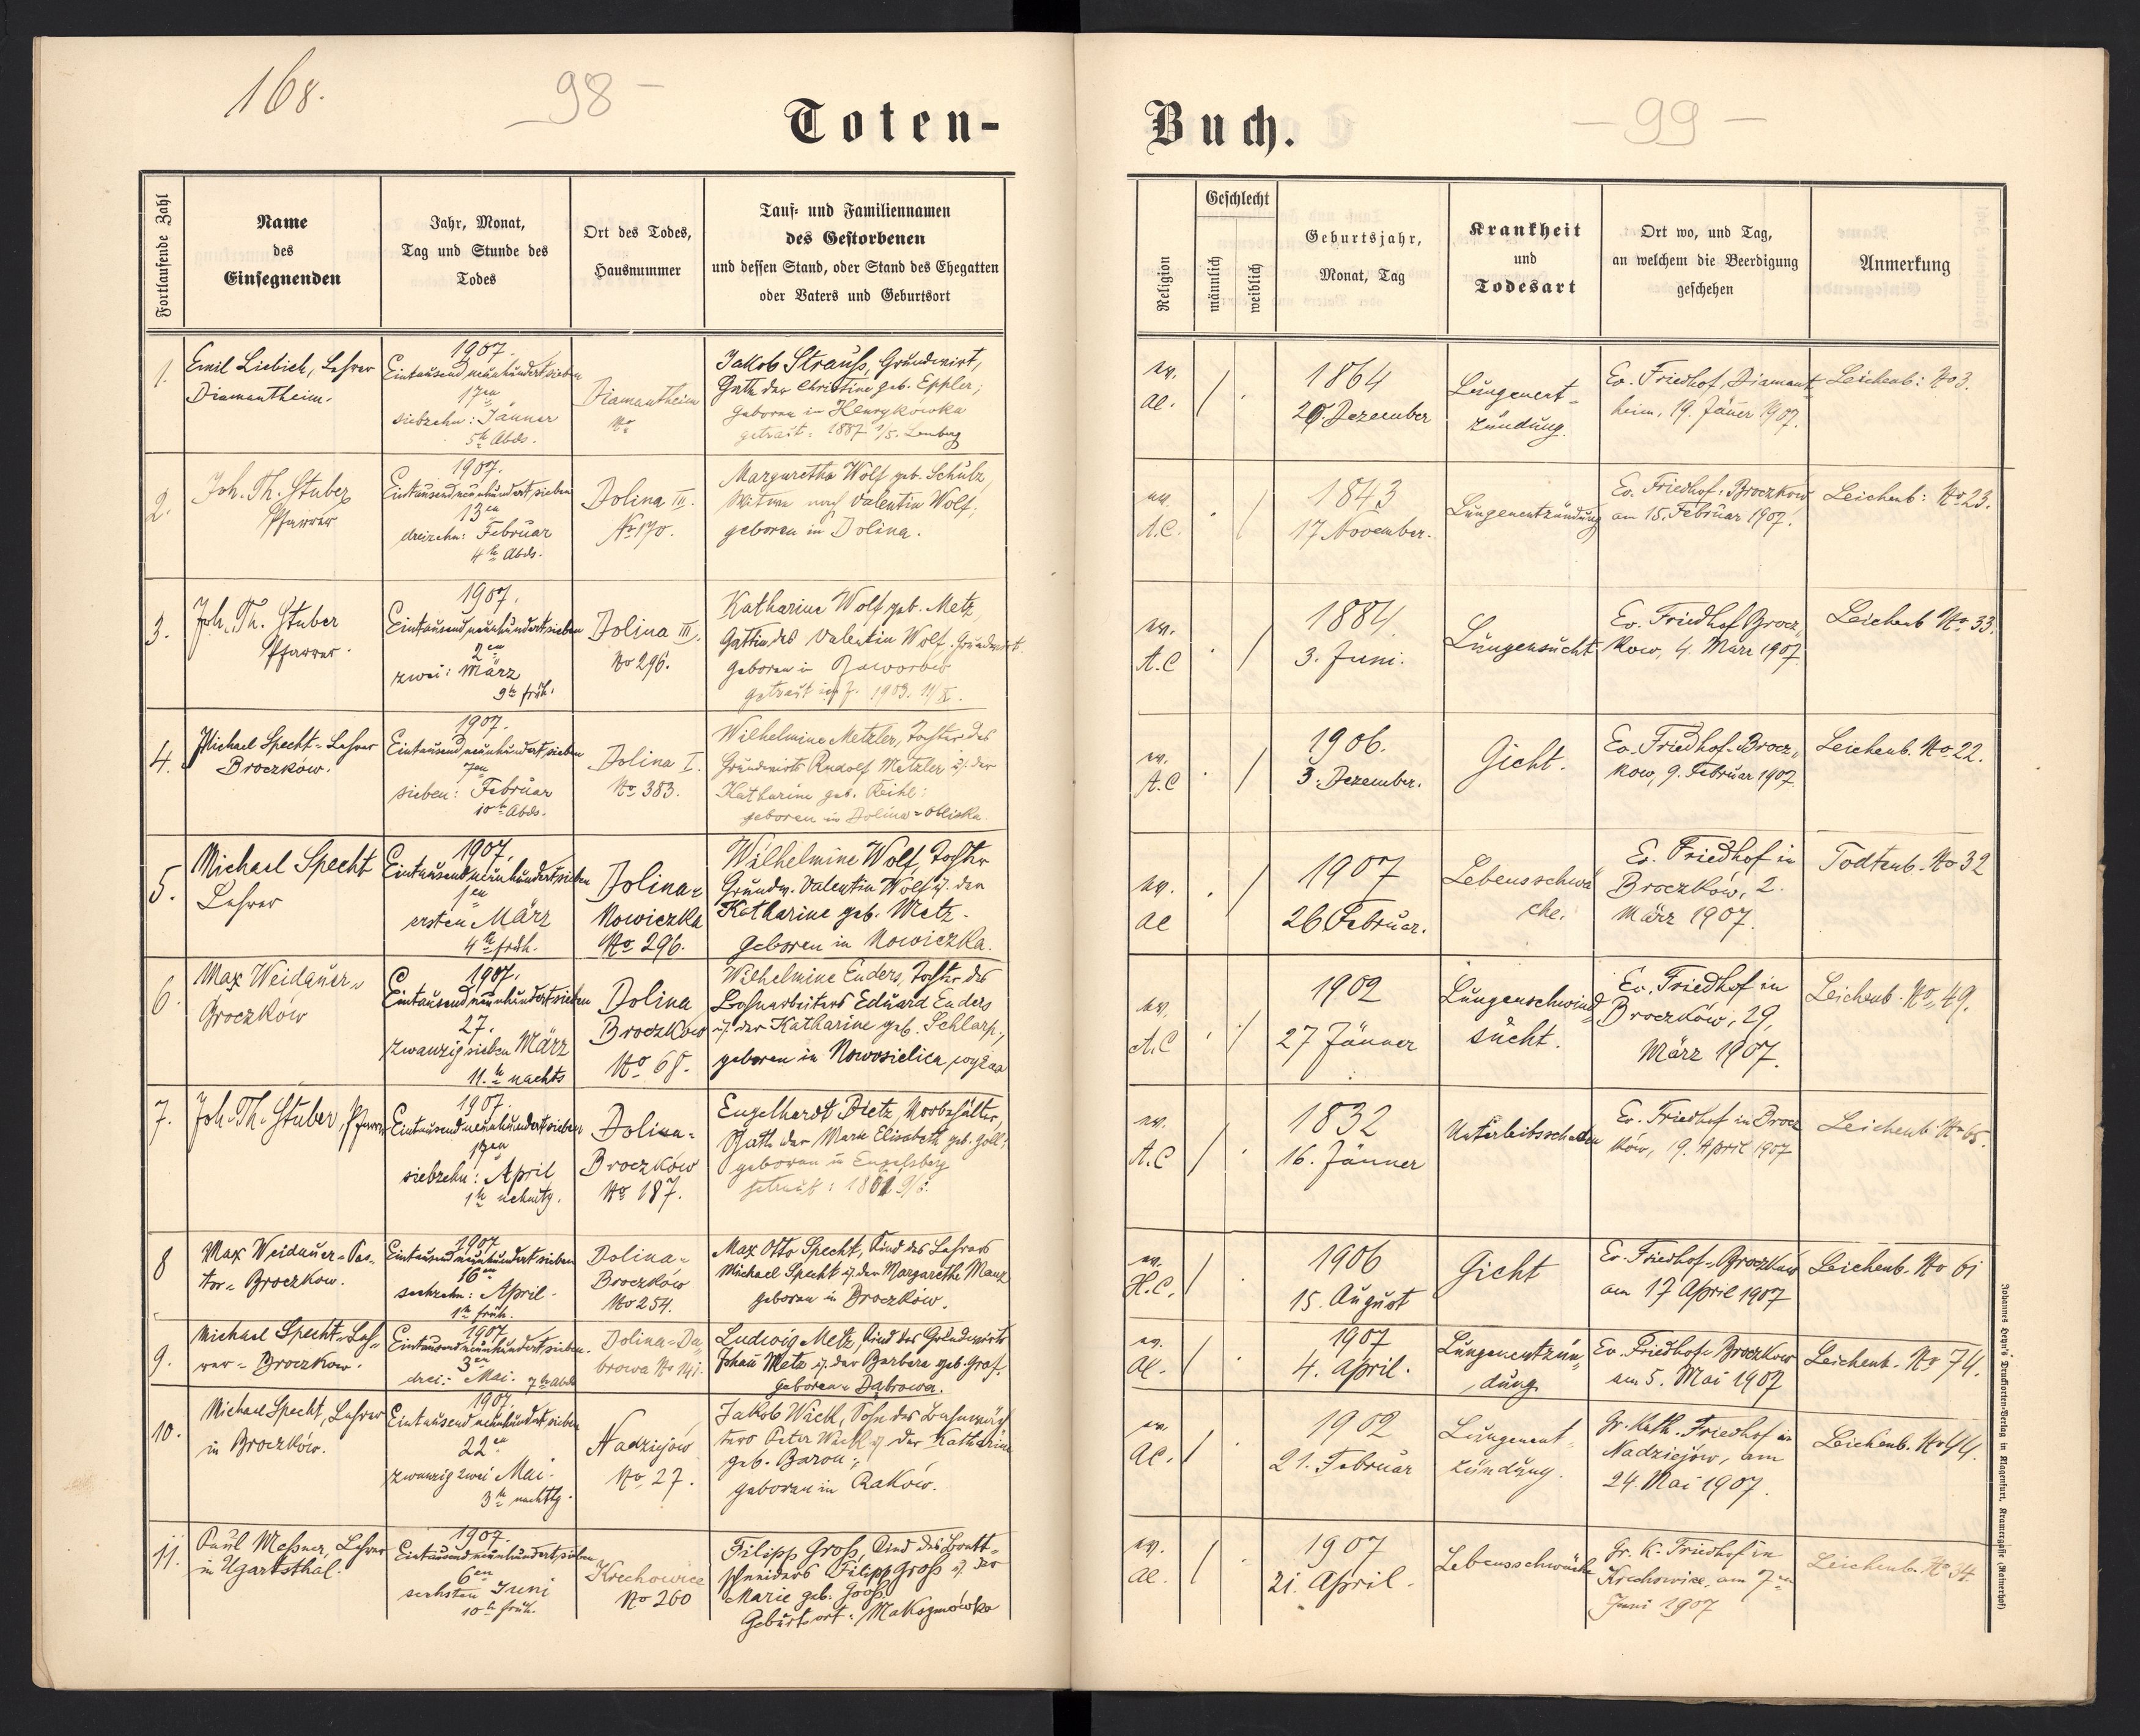 168.
– 98 –
Toten-
Fortlaufende Zahl
Name
des
Einsegnenden
Jahr, Monat,
Tag und Stunde des
Todes
Ort des Todes,
Hausnummer
Tauf- und Familiennamen
des Gestorbenen
und dessen Stand, oder Stand des Ehegatten
oder Vaters und Geburtsort
1.
Emil Liebich, Lehrer
Diamantheim.
1907.
Eintausendneunhundertsieben
17en
siebzehn: Jänner
5h Abds.
Diamantheim
No
Jakob Strauß, Grundwirt,
Gatte der Christine geb. Eppler;
geboren in Henrykówka
getraut: 1887 1/5. Lemberg
2.
Joh. Th. Stuber
Pfarrer
1907.
Eintausendneunhundertsieben
13en
dreizehn: Februar
4h Abds.
Dolina III.
No 170.
Margaretha Wolf geb. Schulz,
Witwe nach Valentin Wolf;
geboren in Dolina.
3.
Joh. Th. Stuber
Pfarrer.
1907.
Eintausendneunhundertsieben
2en
zwei: März
9h früh.
Dolina III.
No 296.
Katharina Wolf geb. Metz,
Gattin des Valentin Wolf. Grundwirt.
geboren in
getraut 1903. 11/X.
4.
Michael Specht - Lehrer
Broczków.
1907.
Eintausendneunhundertsieben
7en
sieben: Februar
10h Abds.
Dolina I.
No 383.
Wilhelmine Metzler, Tochter des
Grundwirts Rudolf Metzler u. der
Katharina geb. Reihl:
geboren in Dolina - Obliska
5.
Michael Specht
Lehrer
1907.
Eintausendneunhundertsieben
1en
ersten März
4h früh.
Dolina-
Nowiczka
No 296.
Wilhelmine Wolf, Tochter
Grundw. Valentin Wolf u. der
Katharine geb. Metz.
geboren in Nowiczka.
6.
Max Weidauer -
Broczków
1907.
Eintausendneunhundertsieben
27.
zwanzigsieben März
11.h nachts
Dolina
Broczków
No 68.
Wilhelmine Enders, Tochter des
Bahnarbeiters Eduard Enders
u. der Katharine geb. Schlarp,
geboren in Nowosielica
7.
Joh. Th. Stuber, Pfarrer
1907.
Eintausendneunhundertsieben
17en
siebzehn: April
1h nchmttg.
Dolina-
Broczków
No 187.
Engelhardt Dietz, Vorbehälter,
Gatte der Maria Elisabeth geb. Göll;
geboren in Engelsberg
getraut: 1861
8
Max Weidauer - Pas-
tor - Broczkow.
1907
Eintausendneunhundertsieben
16en
sechzehn: April
1h früh.
Dolina-
Broczków
No 254.
Max Otto Specht, Kind des Lehrers
Michael Specht u. der Margarethe Manz
geboren in Broczków.
9.
Michael Specht - Leh-
rer - Broczkow.
1907
Eintausendneunhundertsieben.
3en
drei: Mai. 7h Abds
Dolina-Da-
browa No 141.
Ludwig Metz, Kind des Grundwirts
Johann Metz u. der Barbara geb. Graf.
Geboren - Dąbrowa.
10.
Michael Specht, Lehrer
in Broczków.
1907.
Eintausendneunhundertsieben
22en
zwanzigzwei Mai.
3h nachttg.
Nadziejów
No 27.
Jakob Wackl, Sohn des Bahnwäch-
ters Peter Wackl u. der Katharina
geb. Baron;
geboren in Raków.
11.
Paul Meßner, Lehrer
in Ugartsthal.
1907.
Eintausendneunhundertsieben
6en
sechsten Juni
10h früh.
Krechowice
No 260
Filipp Groß, Kind des Brett-
schneiders Filipp Groß u. der
Marie geb. Groß.
Geburtsort: Maksymówka
Buch.
– 99 –
Religion
Geschlecht
männlich
weiblich
Geburtsjahr,
Monat, Tag
Krankheit
und
Todesart
Ort wo, und Tag,
an welchem die Beerdigung
geschehen
Anmerkung
ev.
A.C.
1864
29. Dezember
Lungenent-
zündung.
Ev. Friedhof, Diamant-
heim, 19. Jäner 1907.
Leichenb: No 3.
ev.
A.C.
1843
17 November.
Lungenentzündung
Ev. Friedhof: Broczkow
am 15. Februar 1907.
Leichenb: No 23.
ev.
A.C
1884
3. Juni.
Lungensucht
Ev. Friedhof Brocz-
kow, 4. März 1907.
Leichenb No 33.
ev.
A.C
1906.
3. Dezember.
Gicht.
Ev. Friedhof - Brocz-
kow, 9. Februar 1907.
Leichenb. No 22.
ev.
AC
1907
26 Februar.
Lebensschwä-
che.
Ev. Friedhof in
Broczków, 2.
März 1907.
Todtenb. No 32
ev.
A.C
1902
27 Jänner
Lungenschwind-
sucht.
Ev. Friedhof in
Broczków, 29,
März 1907.
Leichenb. No 49.
ev.
A.C
1832
16. Jänner
Unterleibsschaden
Ev. Friedhof in Brocz-
ków, 19. April 1907
Leichenb. No 65.
ev.
H.C.
1906
15. August
Gicht
Ev. Friedhof - Broczków
am 17 April 1907
Leichenb. No 61
ev.
AC.
1907
4. April.
Lungenentzün-
dung
Ev. Friedhof Broczkow
am 5. Mai 1907
Leichenb. No 74.
ev.
AC.
1902
21. Februar
Lungenent-
zündung.
Gr. Kath. Friedhof in
Nadziejów, am
24. Mai 1907.
Leichenb. No 44.
ev.
AC.
1907
21. April.
Lebensschwäche
Gr. K. Friedhof in
Krechowice, am 7en
Juni 1907
Leichenb. No 34
Johannes Heyn's Drucksorten-Verlag in Klagenfurt, Kramergasse (Rainerhof)